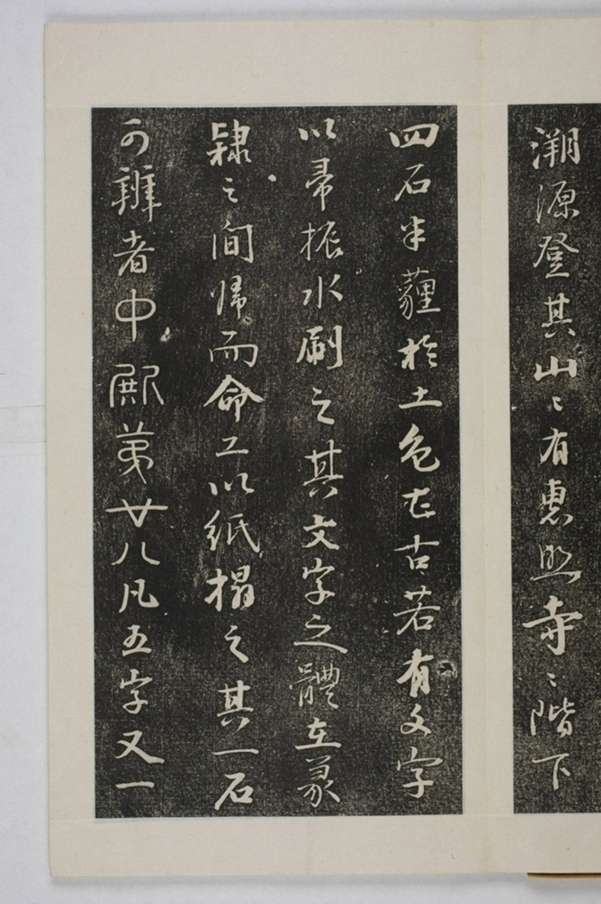 溯源登其山〻有惠照寺〻階下
四石半薶於土色甚古若有文字
以帚振水刷之其文字之體在篆
隸之間歸而命工以紙搨之其一石
可辨者中殿第廿八凡五字又一